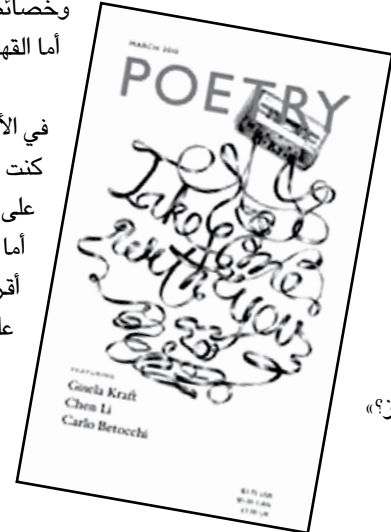 وخصائص
أما القهو
في الأ
كنت
على
أما
أقر
عا
ز؟»
MARCH 2010
POETRY
Take me
with you
FEATURING
Gisela Kraft
Chen Li
Carlo Betocchi
$3.75 USA